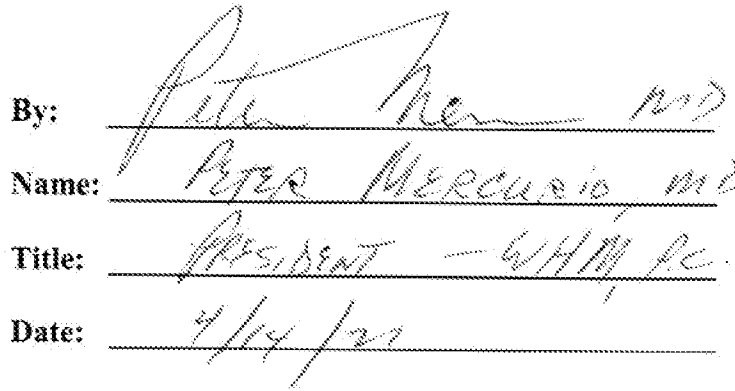 By: Peter Mer MD
Name: PETER MERCURIO, MD
Title: PRESIDENT - WHM, P.C.
Date: 4/14/21